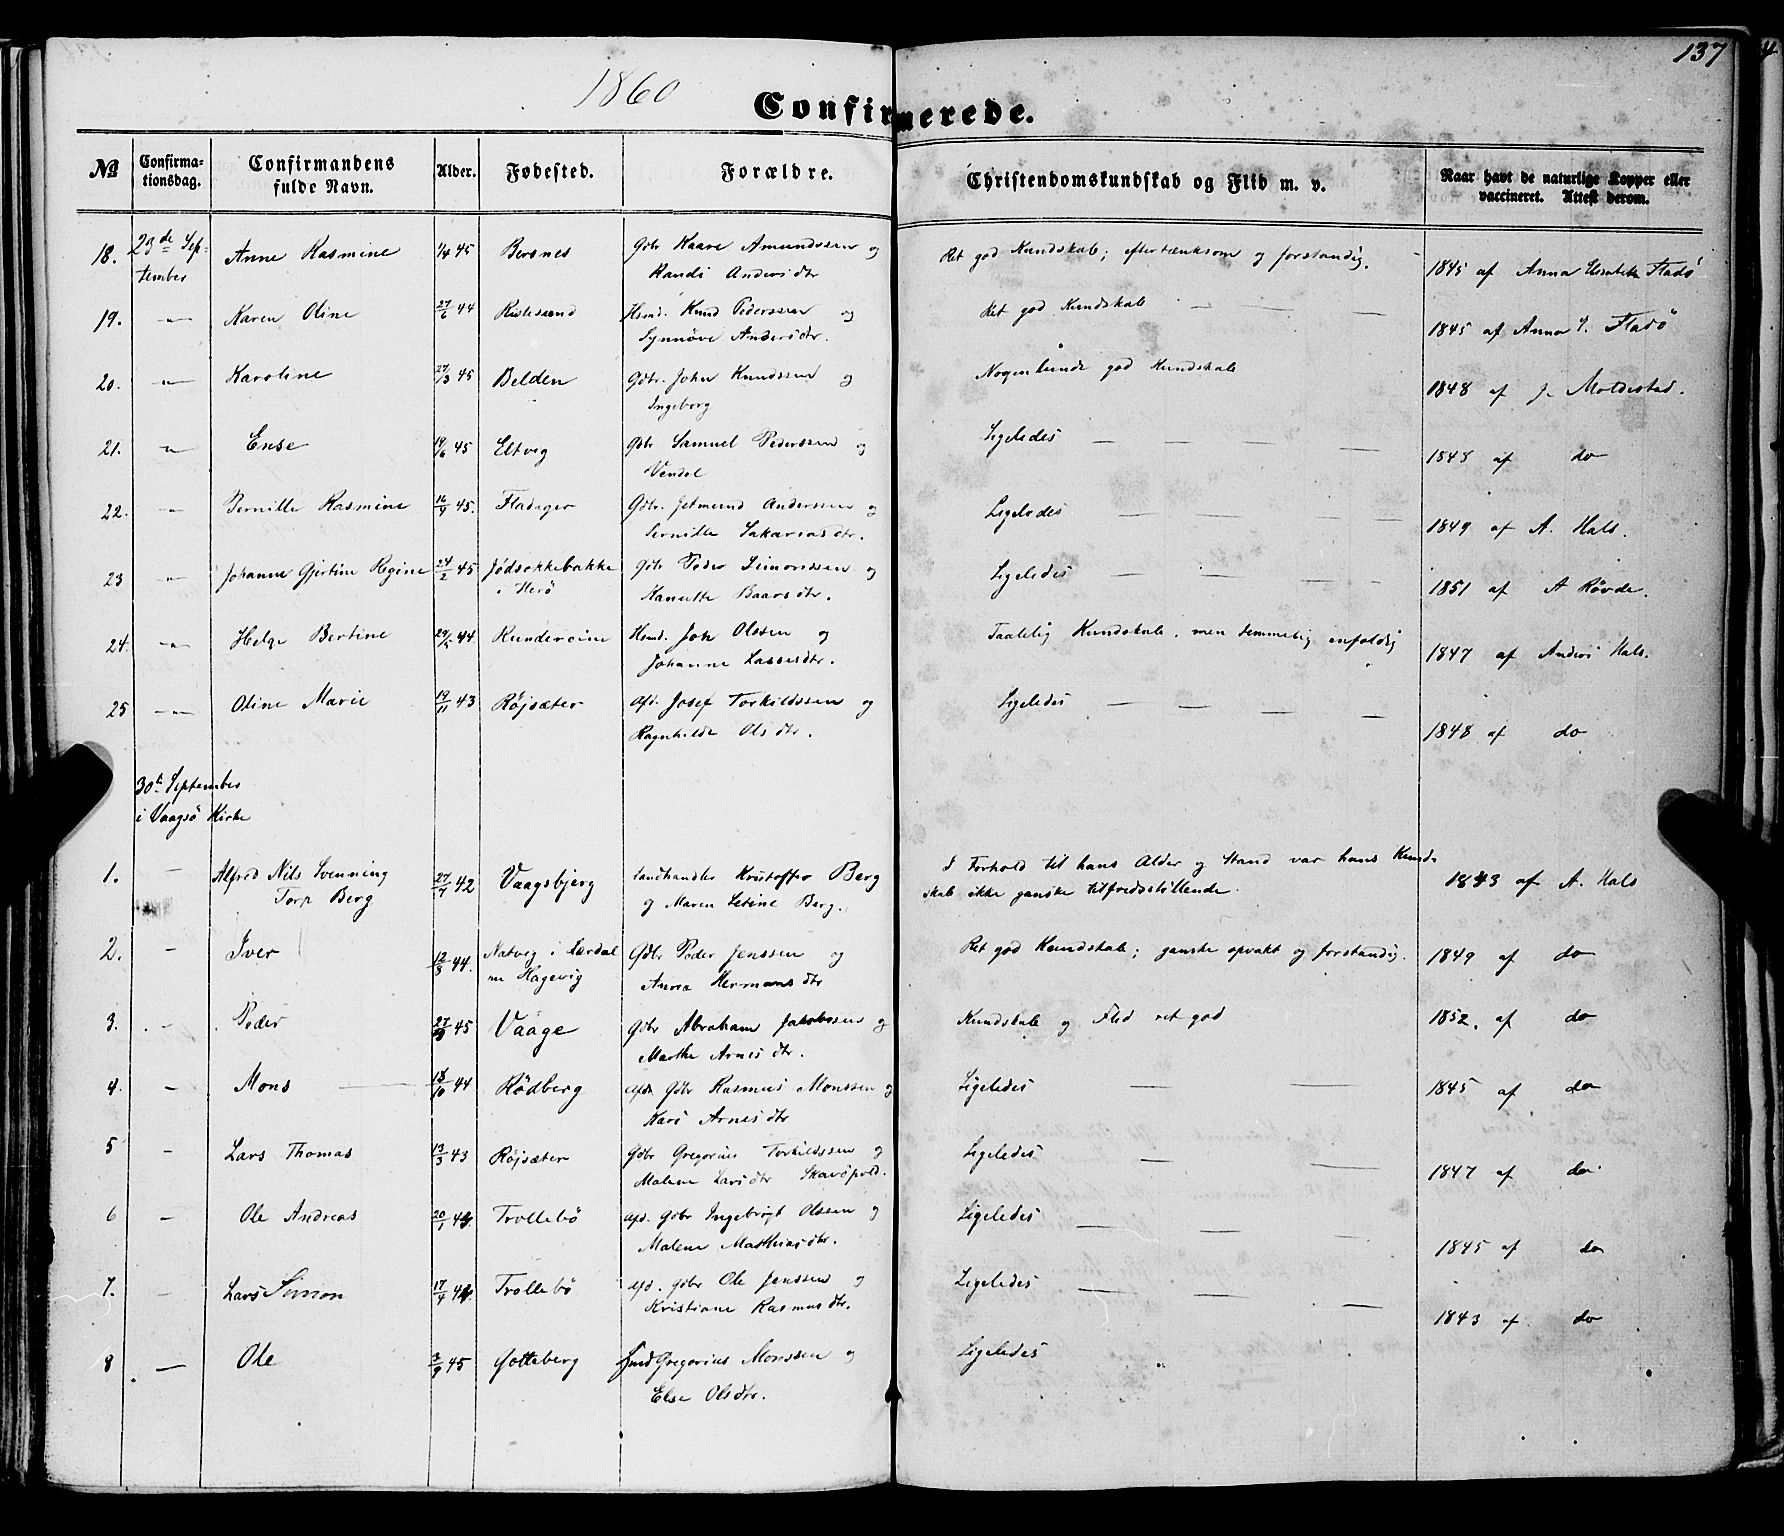 137
1860
Confirmerede.
№ Confirmationsdag. Confirmandens fulde Navn. Alder. Fødested. Forældre. Christendomskundskab og Flid m. v. Naar havt de naturlige Kopper eller vaccineret. Attest derom.
18. 23de September Anne Rasmine 1/4 45 Bersnes Gdbr Kaare Amundssen og Randi Andersdtr Ret god Kundskab; eftertænksom og forstandig. 1845 af Anna Elisabeth Fladö
19. -"- Karen Oline 27/6 44 Ristesund Hsmd. Knud Pederssen og Synnöve Andersdtr. Ret god Kundskab — — — 1845 af Anna E. Fladö
20. -"- Karoline 27/3 45 Belden Gdbr. John Knudssen og Ingeborg Nogenlunde god Kundskab 1848 af J. Moldestad.
21. -"- Ense 19/6 45 Eltvig Gdbr Samuel Pederssen og Vendel Ligeledes — — — — 1848 af do
22. -"- Pernille Rasmine 16/9 45. Fladeger Gdbr. Jetmund Anderssen og Pernille Sakariasdtr. Ligeledes — — — — 1849 af A. Hals.
23 -"- Johanne Gjertine Regine 24/2 45 Jödsokkebakke i Herö Gdbr Peder Simonssen og Hanutte Baarsdtr. Ligeledes — — — 1851 af A Rövde.
24. -"- Helge Bertine 29/5 44 Rundereine Hsmd. Joh Olssen og Johanne Lassesdtr. Taalelig Kundskab, men temmelig enfoldig 1847 af Anders Hals.
25 -"- Oline Marie 19/11 43 Röjsæter afd. Josef Torkildssen og Ragnhilde Olsdtr. Ligeledes — — — — 1848 af do
30te September
i Vaagsö Kirke
1. — Alfred Nils Svenning Torp Berg 27/7 42 Vaagsbjerg Landhandler Kristoffer Berg og Maren Setine Berg. I Forhold til hans Alder og Stand var hans Kundskab ikke ganske tilfredsstillende. 1843 af A. Hals
2. - Iver 12/8 44. Natvig i Lærdal nu Hagevig Gdbr Peder Jenssen og Anna Hermansdtr Ret god Kundskab; ganske opvakt og forstandig. 1849 af do
3. - Peder 27/3 45 Vaage Gdbr Abraham Jakobssen og Marthe Arnesdtr. Kundskab og Flid ret god 1852. af do
4. - Mons 18/10 44 Rödberg afd. Gdbr Rasmus Monssen og Kari Arnesdtr Ligeledes — — 1845 af do
5 - Lars Thomas 13/3 43 Röjsæter Gdbr Gregorius Torkildssen og Malene Larsdtr Skavöpold. Ligeledes — — 1847 af do
6 - Ole Andreas 20/1 44 Trollebö afd. Gdbr Ingebrigt Olssen og Malene Matthiasdtr. Ligeledes — — — 1845 af do
7. - Lars Simon 17/4 44 Trollebö afd. Gdbr Ole Jenssen og Kristiane Rasmusdtr. Ligeledes — — — 1843 af do
8 — Ole 3/9 45 Gotteberg Hsmd Gregorius Monssen og Else Olsdtr. Ligeledes "